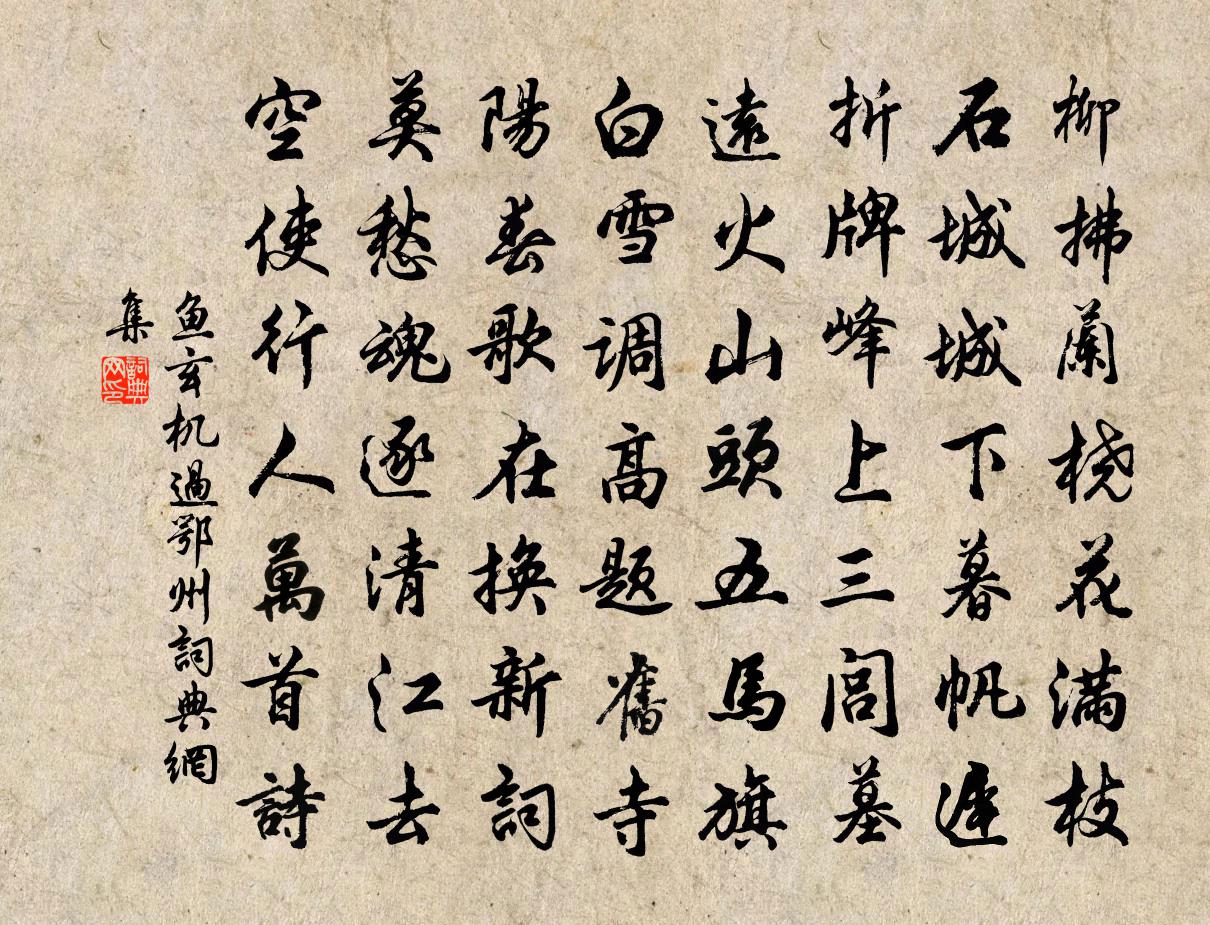 柳拂蘭桡花滿枝
石城城下暮帆遲
折牌峰上三閭墓
遠火山頭五馬旗
白雪调高題舊寺
陽春歌在換新詞
莫愁魂逐清江去
空使行人萬首詩
鱼玄机過鄂州詞典網
集
詞典网印